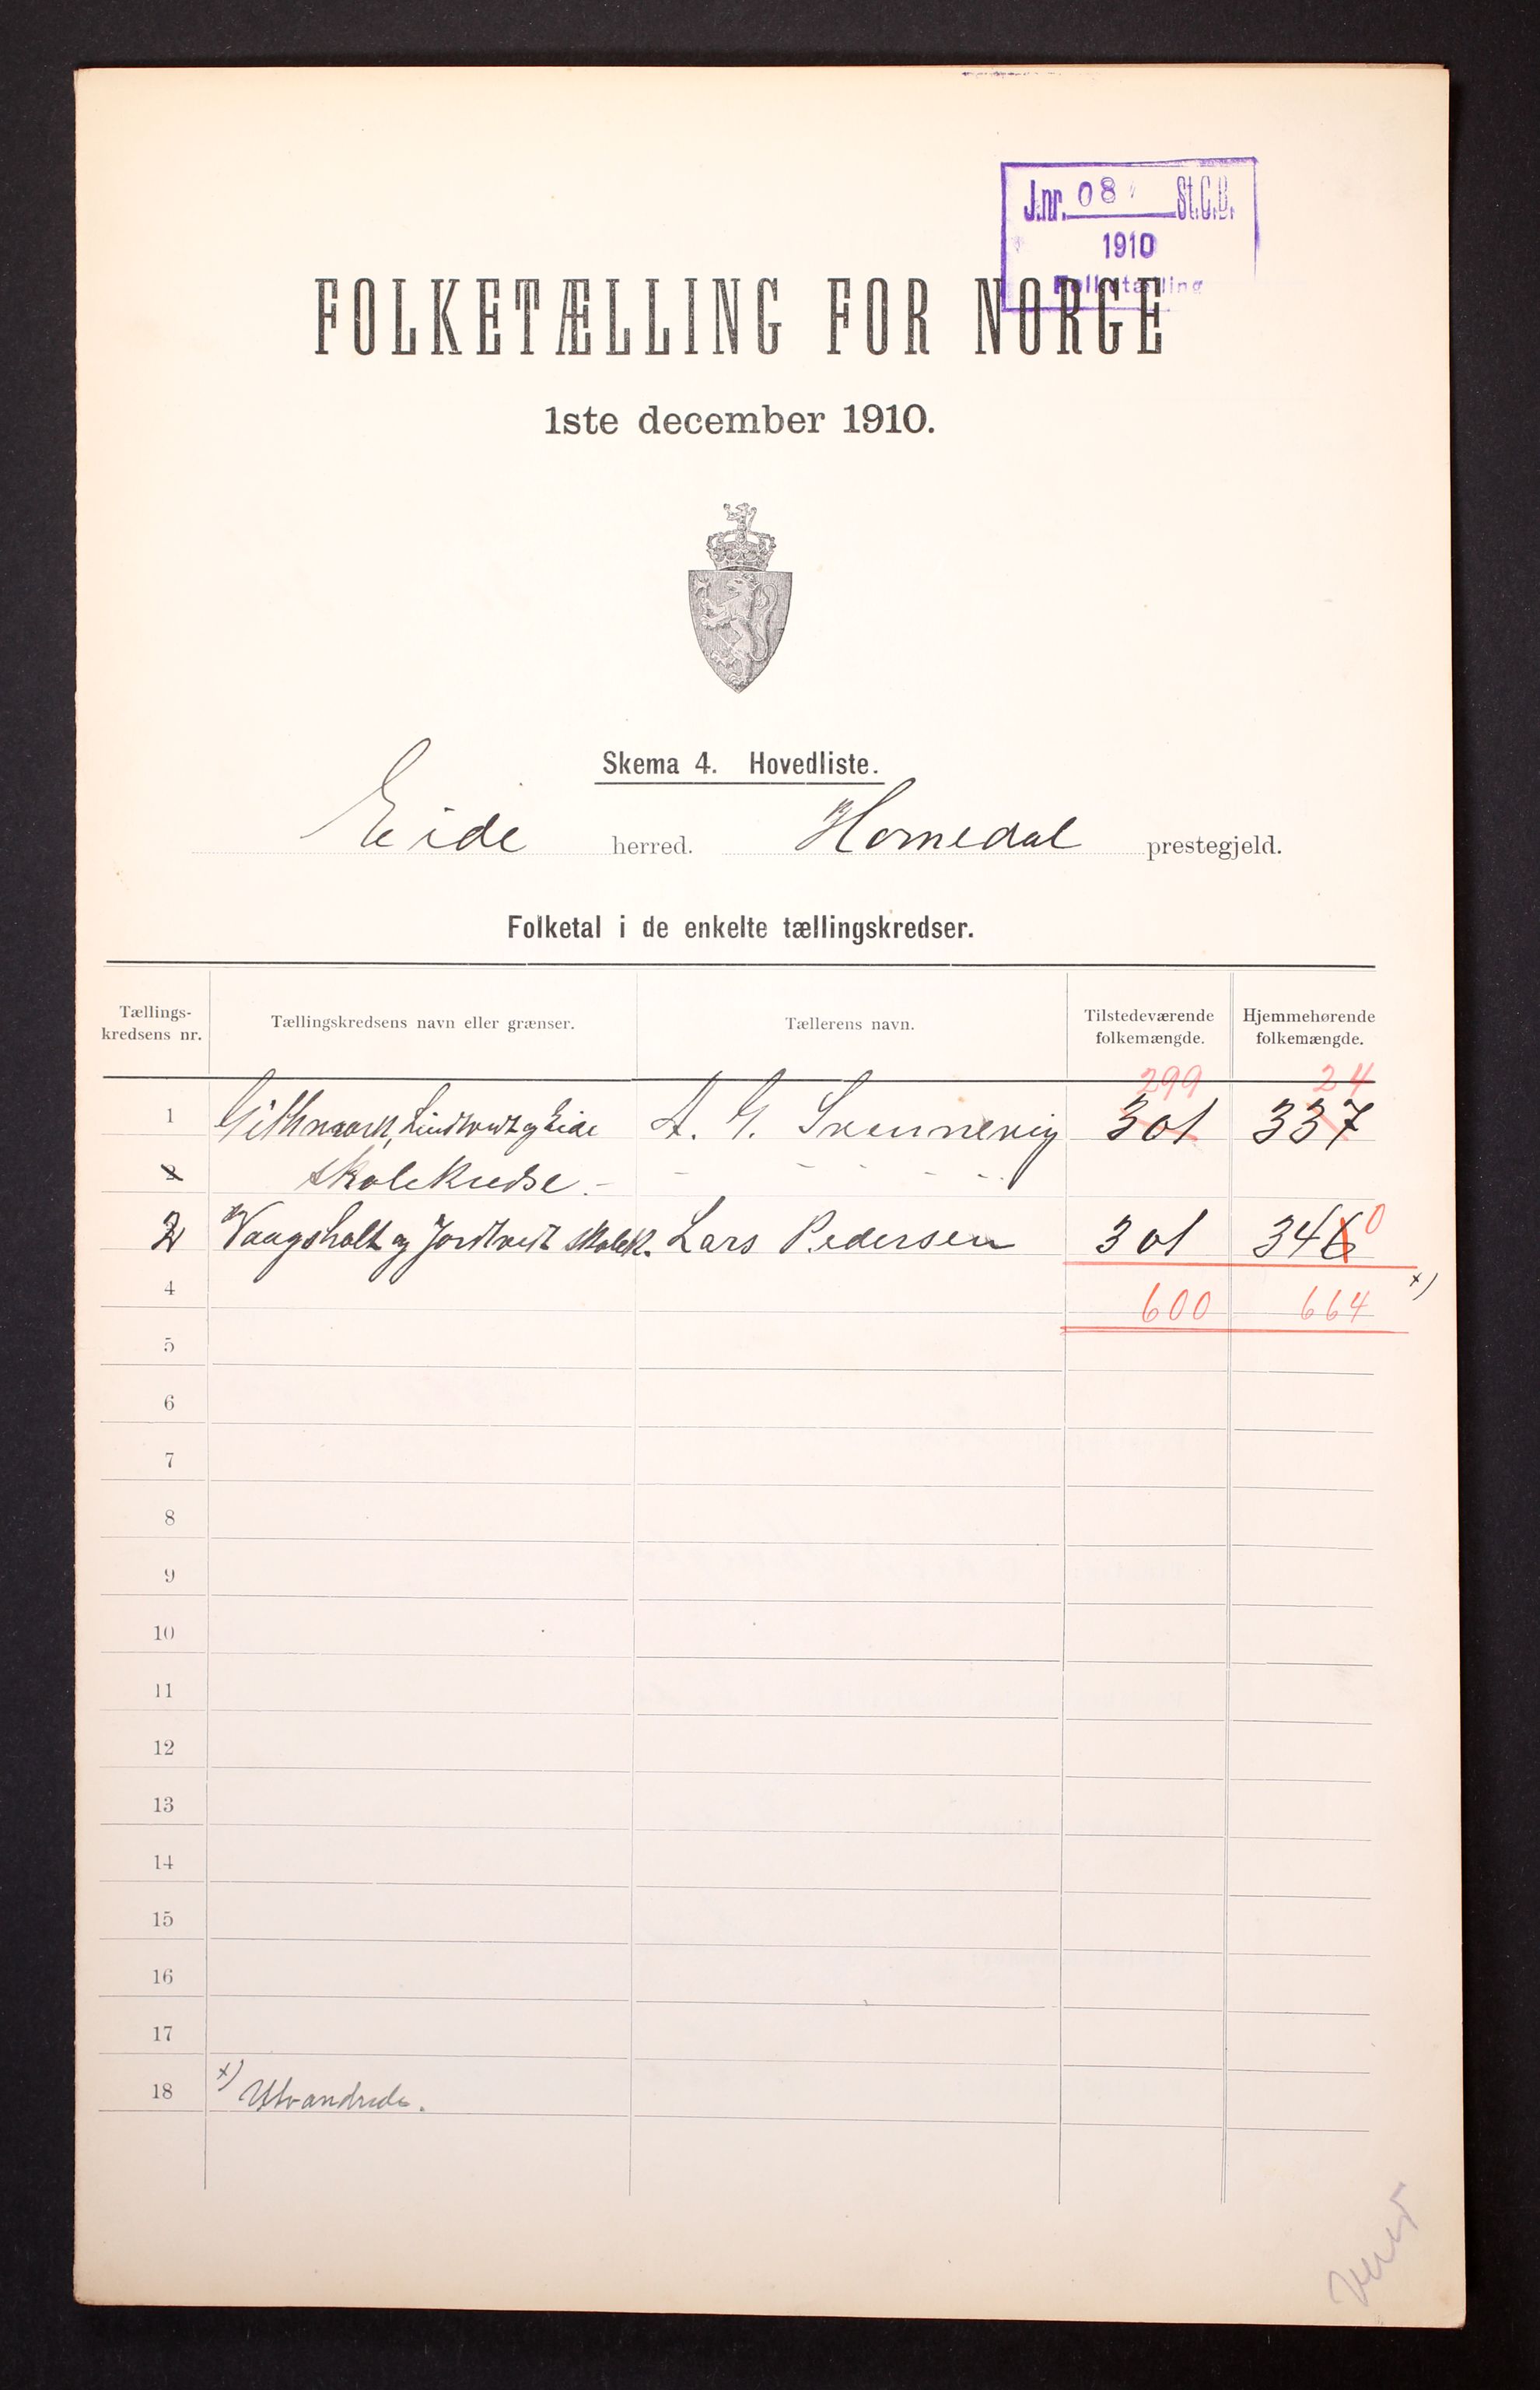 J.nr. 08 St.C.B.
1910
Folketælling
FOLKETÆLLING FOR NORGE
1ste december 1910.
Skema 4. Hovedliste.
Eide herred. Homedal prestegjeld.
Folketal i de enkelte tællingskredser.
Tællings-kredsens nr. Tællingskredsens navn eller grænser. Tællerens navn. Tilstedeværende folkemængde. Hjemmehørende folkemængde.
299 24
1 Githmark, Lindtveit og Eide A. G. Svennevig 301 337
2 skolekredse. - - - - - -
2 Vaagsholt og Jordtveit skolek. Lars Pedersen 301 346 0
4 600 664 x)
5
6
7
8
9
10
11
12
13
14
15
16
17
18 x) Utvandrede.